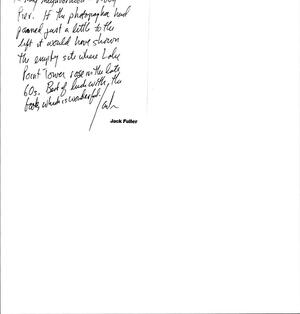 my neighborhood
Pier. If the photographer had
panned just a little to the
left it would have shown
the empty site where Lake
Point Tower rose in the late
60s. Best of luck with the
book, which is wonderful.
Jack
Jack Fuller